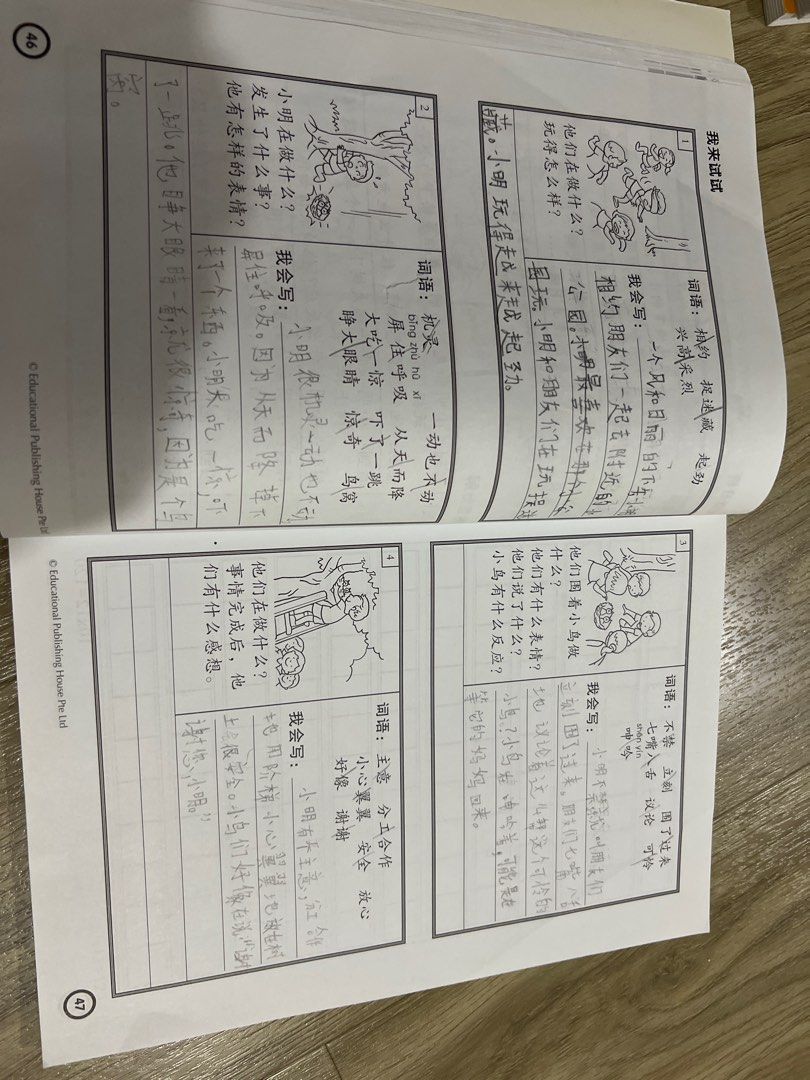 我来试试
1
他们在做什么？
玩得怎么样？
词语：相约 捉迷藏 起劲
兴高采烈
我会写：一个风和日丽的下午
相约朋友们一起去附近的
公园。小明最喜欢在那个
园玩。小明和朋友们在玩捉迷
藏。小明玩得越来越起劲。
2
小明在做什么？
发生了什么事？
他有怎样的表情？
词语：机灵 一动也不动
bǐng zhù hū xī
屏住呼吸 从天而降
大吃一惊 吓了一跳
睁大眼睛 惊奇 鸟窝
我会写：小明很机灵一动也不动
屏住呼吸。因为从天而降掉下
来了一个东西。小明大吃一惊，吓
了一跳。他睁大眼睛一看，就很惊奇，因为是个鸟
窝。
46
© Educational Publishing House Pte Lt
3
他们围着小鸟做
什么？
他们有什么表情？
他们说了什么？
小鸟有什么反应？
词语：不禁 立刻 围了过来
七嘴八舌 议论 可怜
shēn yín
呻吟
我会写：小明不禁 叫朋友们
立刻围了过来。朋友们七嘴八舌
地议论着这 这个可怜的
小鸟？小鸟在呻吟着，可能是在
等它的妈妈回来。
4
他们在做什么？
事情完成后，他
们有什么感想。
词语：主意 分工合作
小心翼翼 安全 放心
好像 谢谢
我会写：小明有个主意，分工合作
地用阶梯小心翼翼地放在树
上 很安全。小鸟们好像在说：“谢谢
谢您，小明。”
© Educational Publishing House Pte Ltd
47